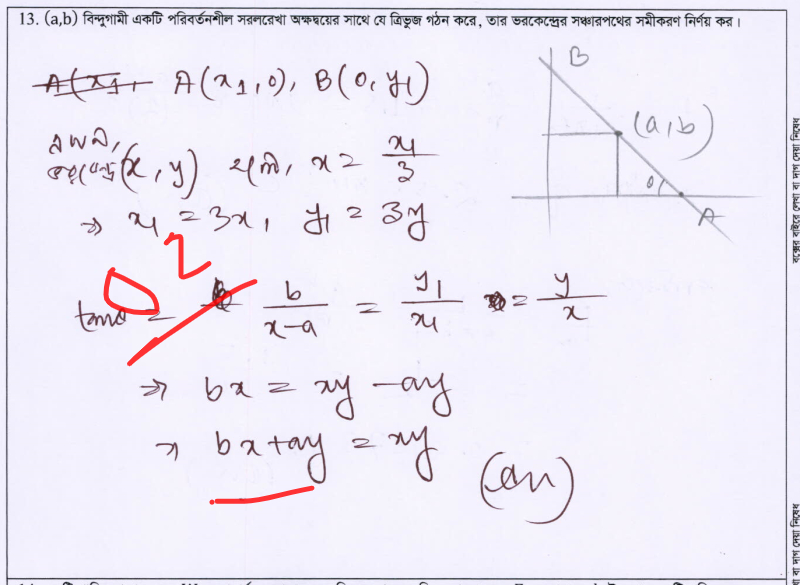 13. (a,b) বিন্দুগামী একটি পরিবর্তনশীল সরলরেখা অক্ষদ্বয়ের সাথে যে ত্রিভুজ গঠন করে, তার ভরকেন্দ্রের সঞ্চারপথের সমীকরণ নির্ণয় কর।
A(x₁, A(x₁,0), B(0,y₁)
B
(a,b)
θ
A
ভরকেন্দ্র (x,y) হলে, x = x₁/3
⇒ x₁ = 3x, y₁ = 3y
0 2
tanθ = b/(x-a) = y₁/x₁ = y/x
⇒ bx = xy - ay
⇒ bx + ay = xy
(Ans)
বক্সের বাইরে লেখা বা দাগ দেয়া নিষেধ
বা দাগ দেয়া নিষেধ